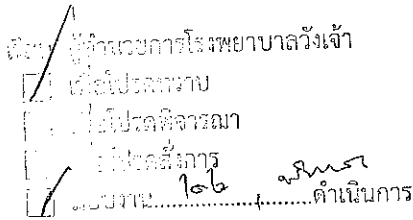 เรียน ผู้อำนวยการโรงพยาบาลวังเจ้า
เพื่อโปรดทราบ
เพื่อโปรดพิจารณา
เพื่อโปรดสั่งการ
มอบงาน....................ดำเนินการ